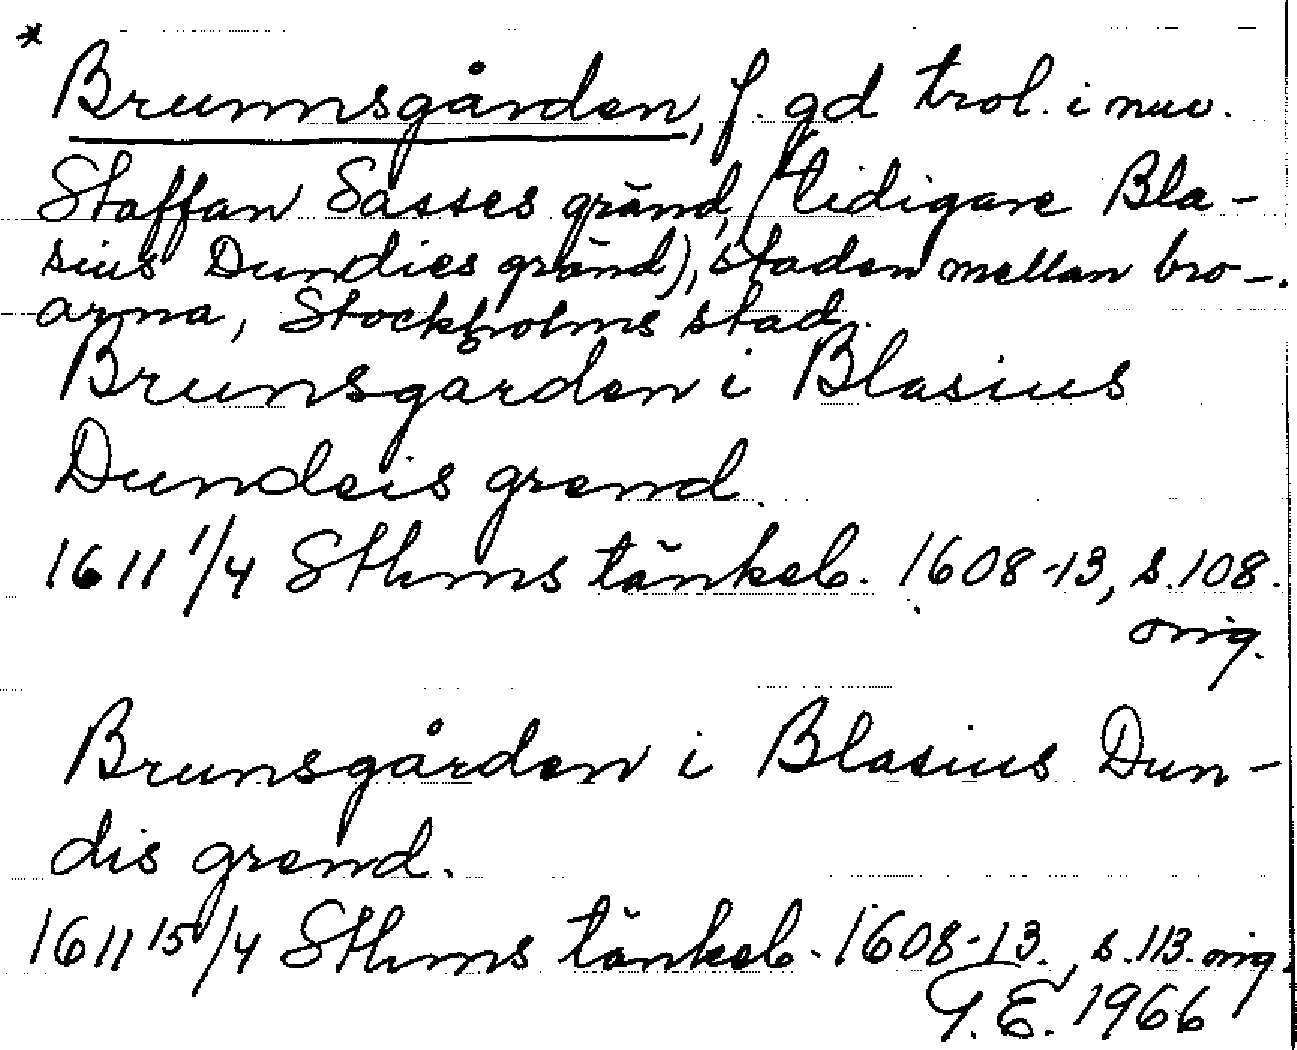 * Brunnsgården, f. gd trol. i nuv.
Staffan Sasses gränd, (tidigare Bla-
sius Dundies gränd), staden mellan bro-
arna, Stockholms stad.
Brunsgården i Blasius
Dundeis grend.
1611 1/4 Sthms tänkeb. 1608-13, s. 108.
orig.
Brunsgården i Blasius Dun-
dis grend.
1611 15/4 Sthms tänkeb. 1608-13., s. 113. orig.
G.E. 1966